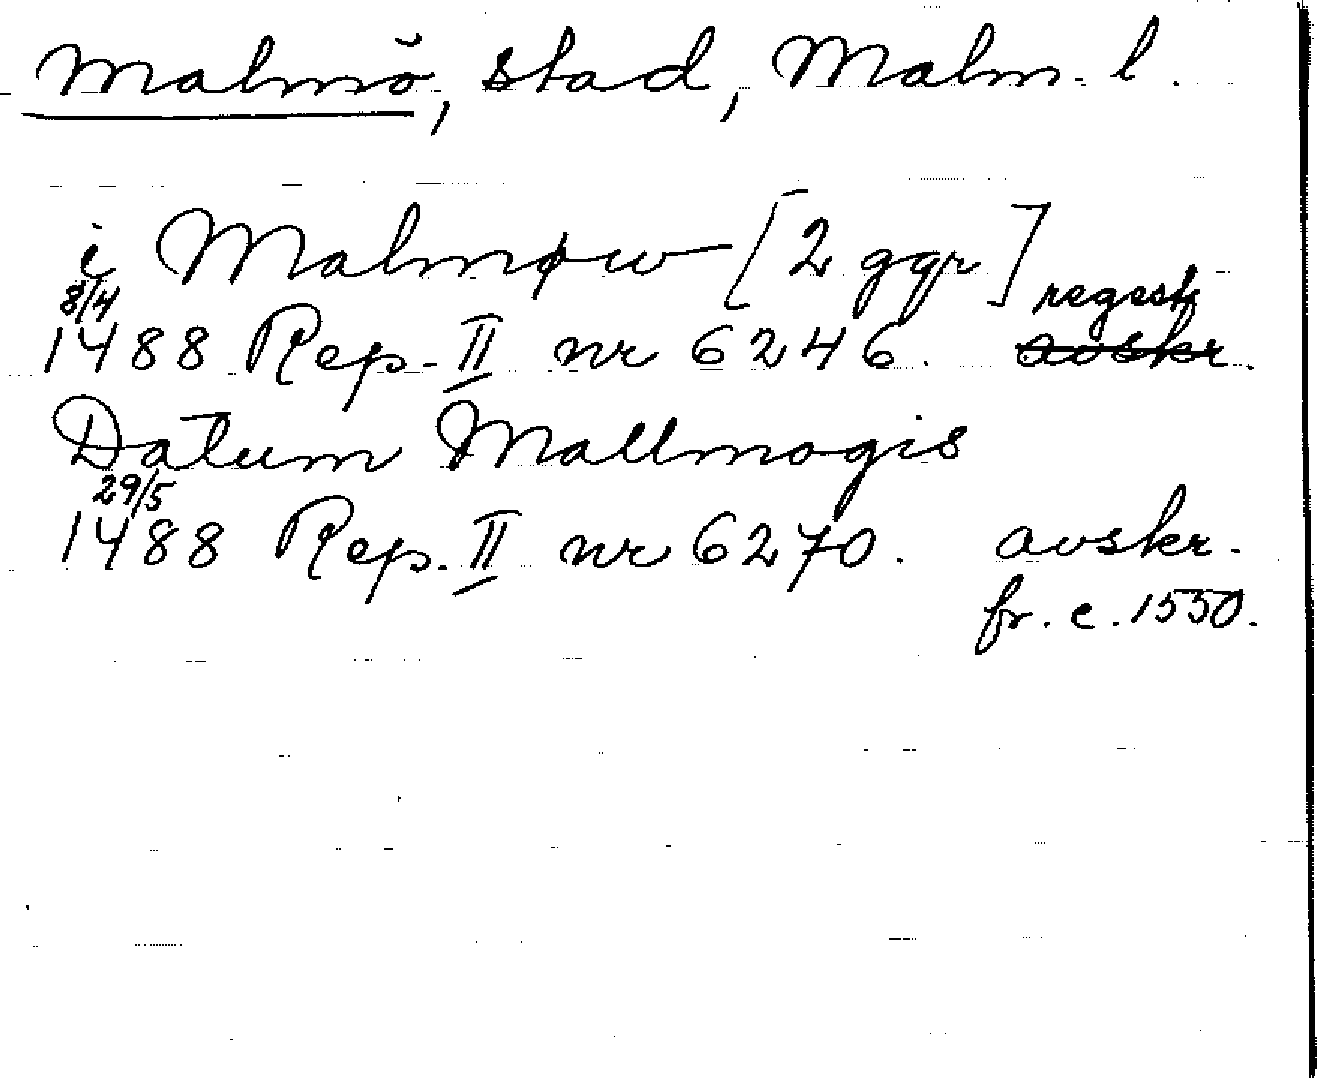 Malmö, stad, Malm. l.
i Malmøw [2 ggr]
8/4 regest
1488 Rep. II nr 6246. avskr.
Datum Mallmogis
29/5
1488 Rep. II nr 6270. avskr.
fr. c. 1550.